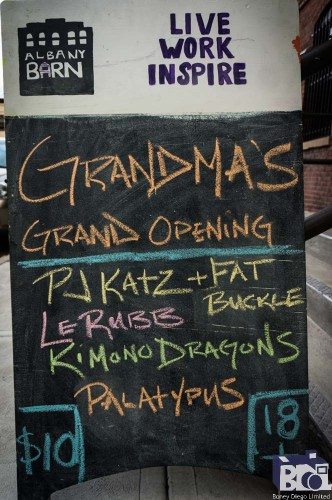 ALBANY
BARN
LIVE
WORK
INSPIRE
GRANDMA'S
GRAND OPENING
PJ KATZ + FAT
BUCKLE
LE RUBB
KIMONO DRAGONS
PALATYPUS
$10
18
Boney Diego Limited